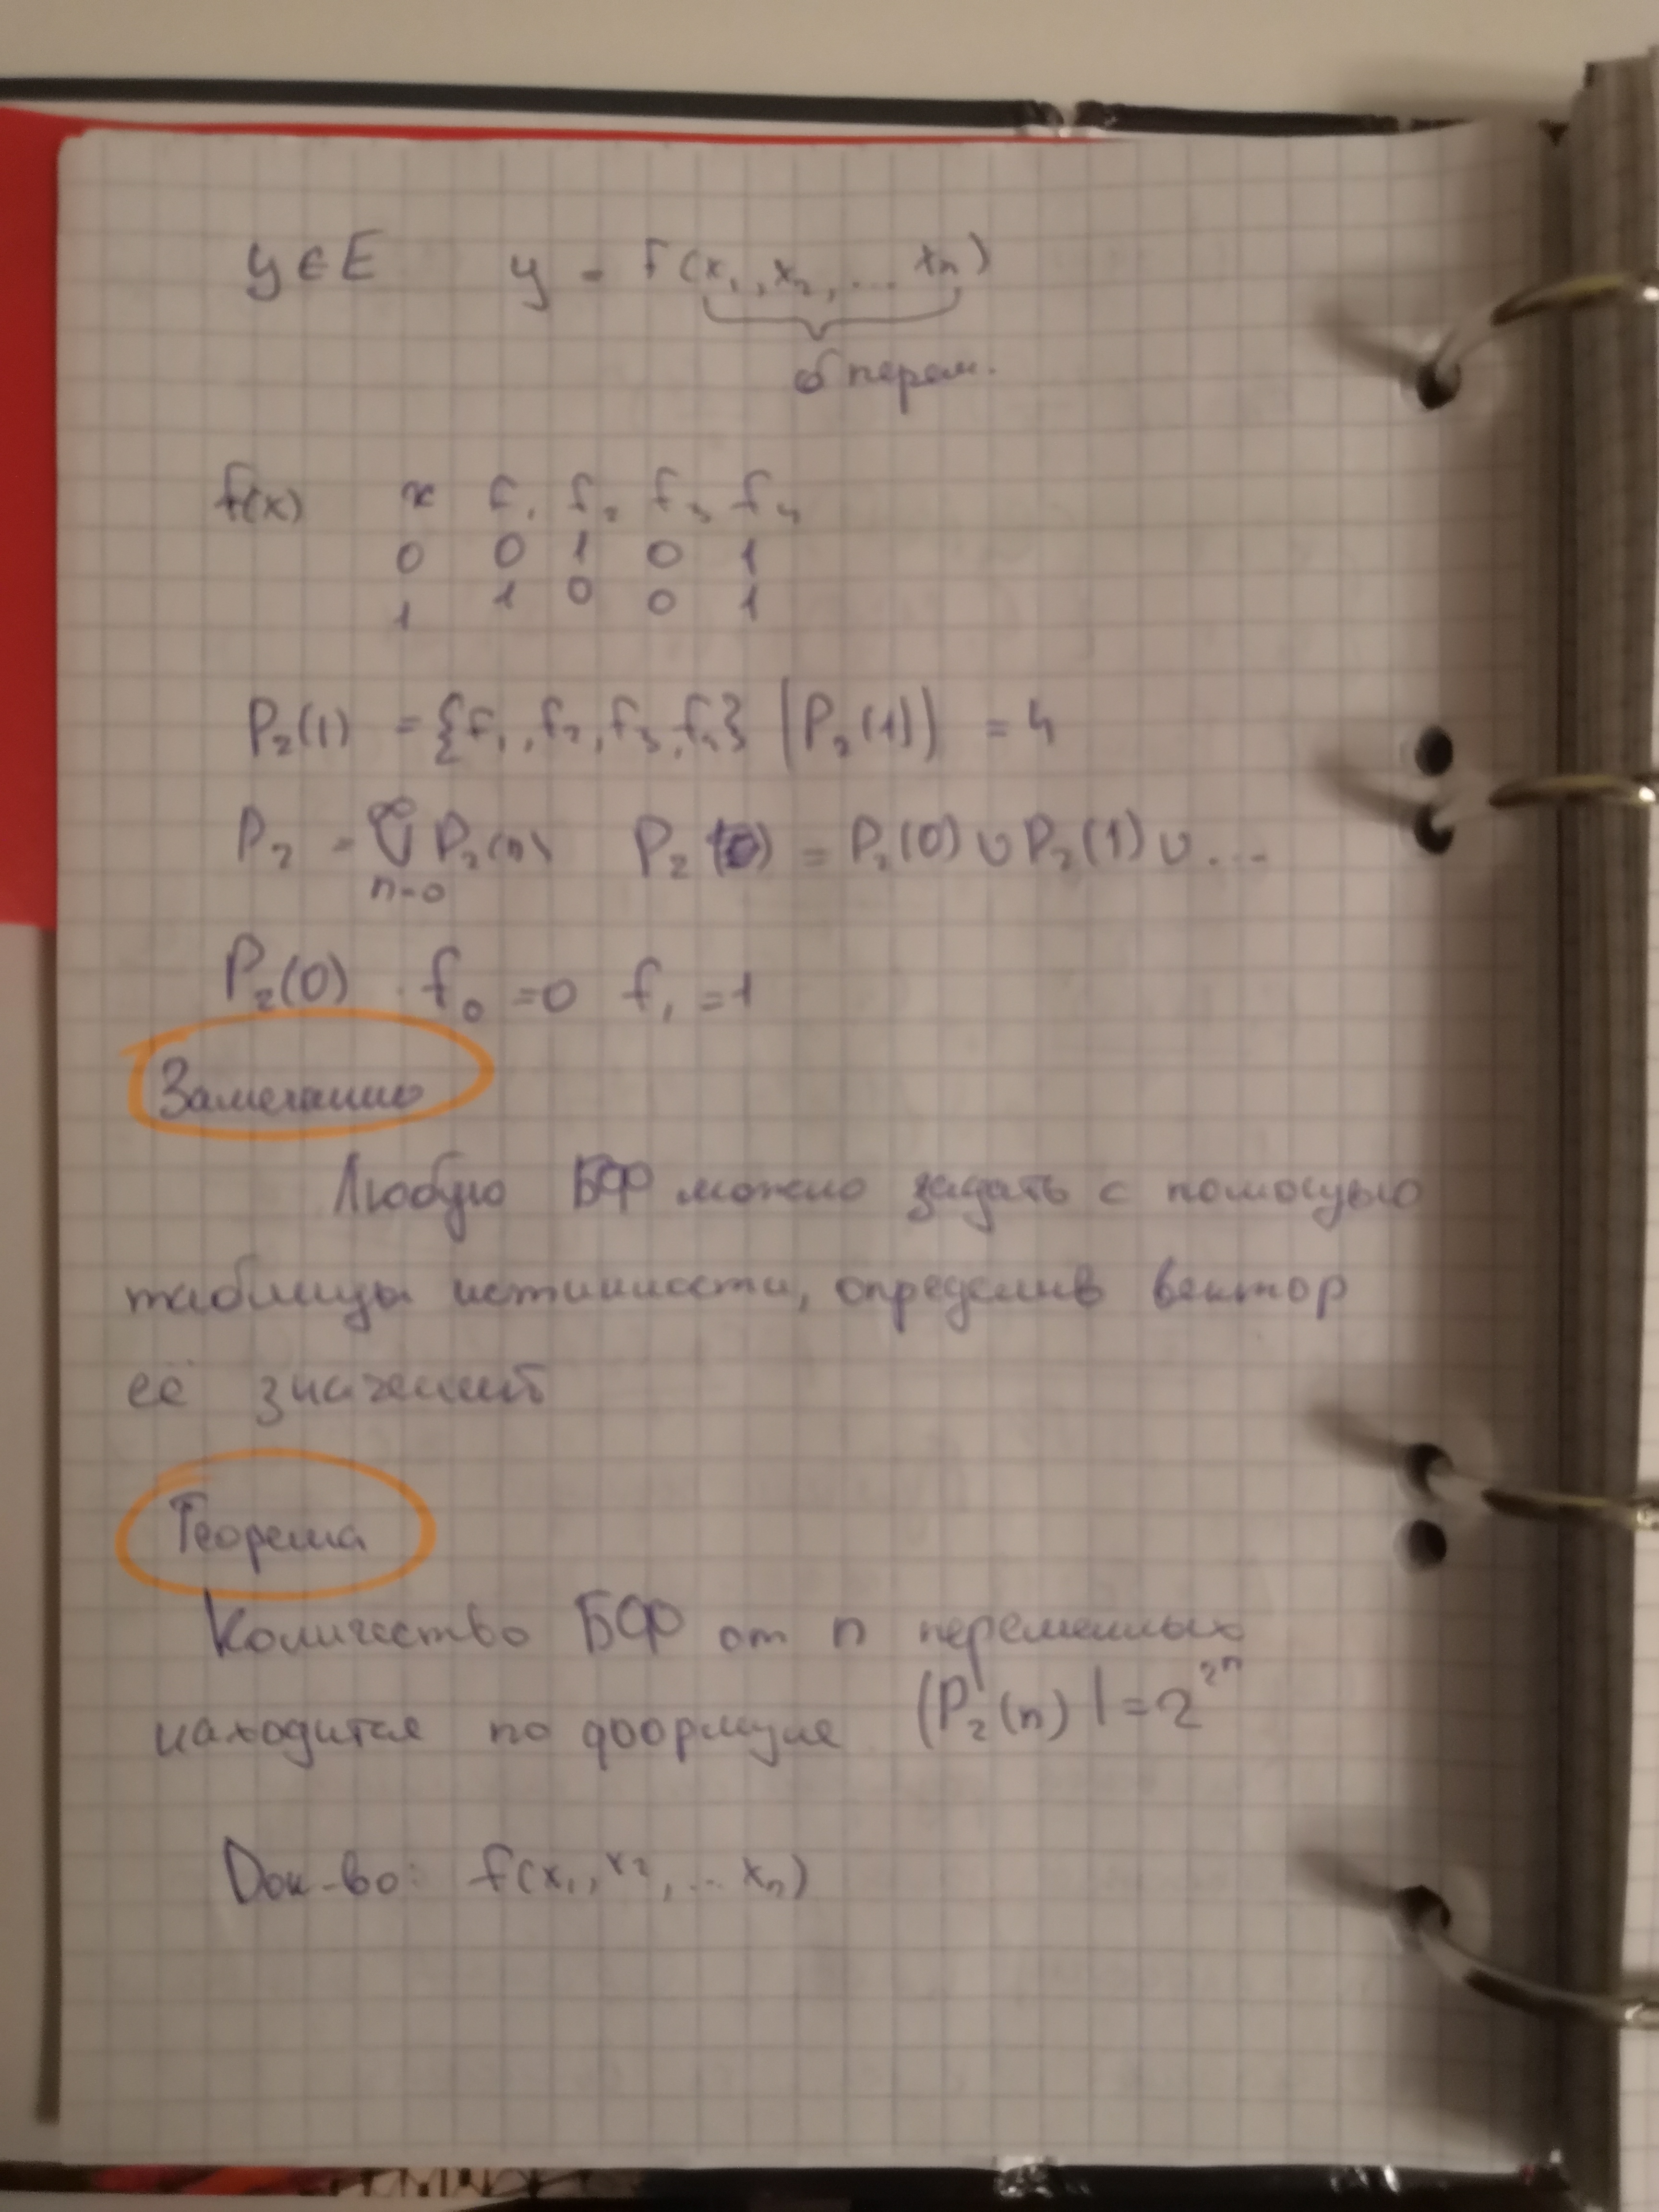 y ∈ E y = f(x₁, x₂, ... xₙ)
б перем.
f(x) x f₁ f₂ f₃ f₄
0 0 1 0 1
1 1 0 0 1
P₂(1) = {f₁, f₂, f₃, f₄} |P₂(1)| = 4
P₂ = ∞∪n=0 P₂(n) P₂ = P₂(0) ∪ P₂(1) ∪ ...
P₂(0) f₀ = 0 f₁ = 1
Замечание
Любую БФ можно задать с помощью
таблицы истинности, определив вектор
её значений
Теорема
Количество БФ от n переменных
находится по формуле |P₂(n)| = 2^2^n
Док-во: f(x₁, x₂, ... xₙ)